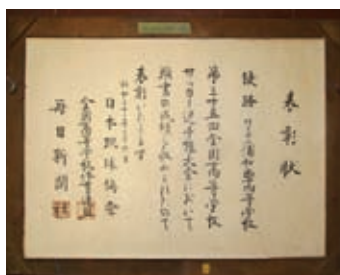 表彰状
優勝 浦和高等学校
第三十五回全国高等学校
サッカー選手権大会において
頭書の成績を収められましたので
表彰いたします
日本蹴球協会
全国高等学校体育連盟
毎日新聞